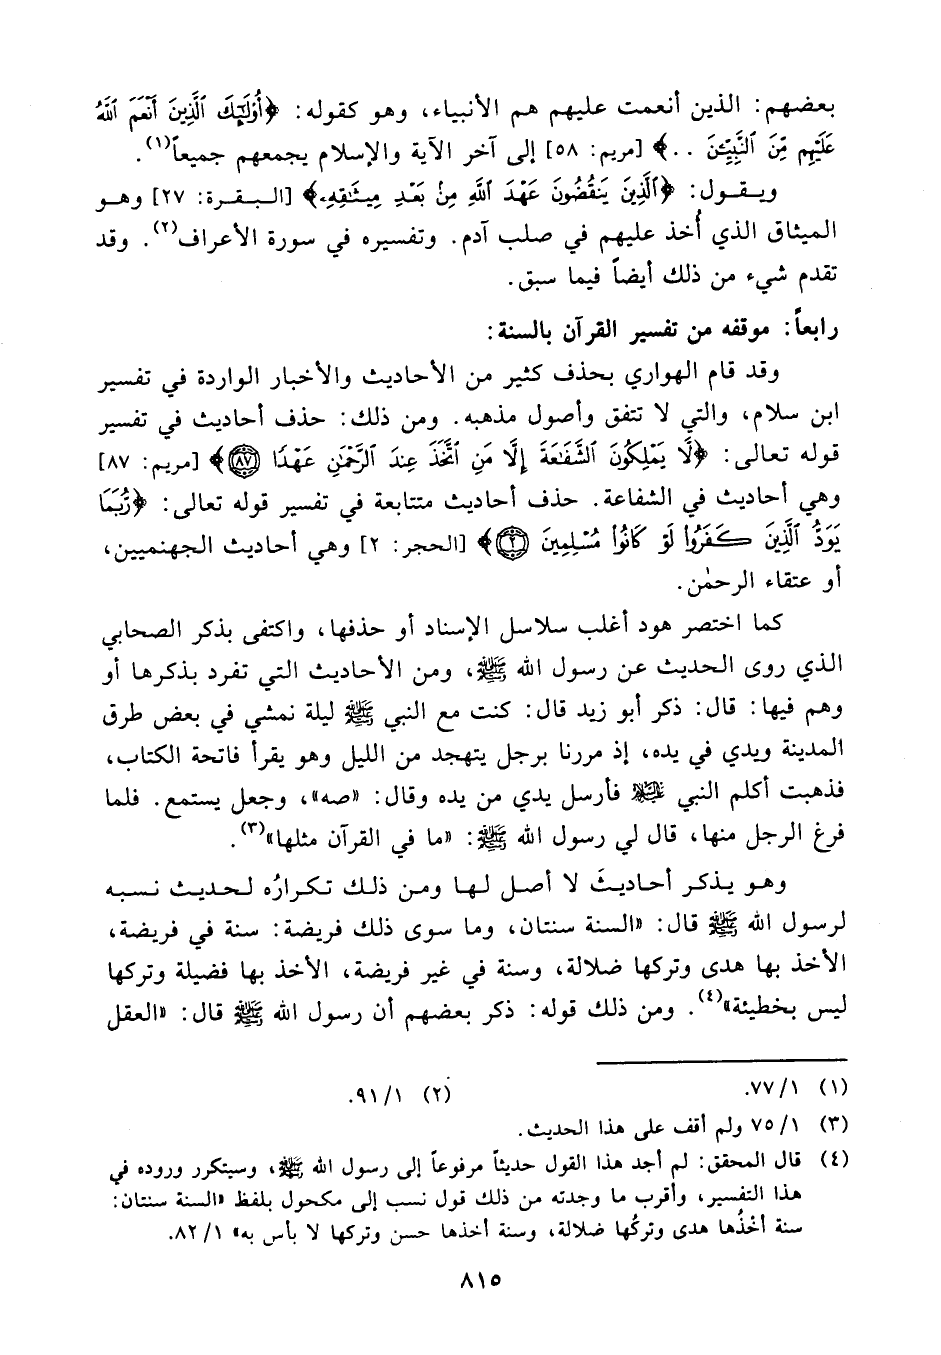 بعضهم: الذين أنعمت عليهم هم الأنبياء، وهو كقوله: ﴿أُوْلَٰٓئِكَ ٱلَّذِينَ أَنْعَمَ ٱللَّهُ
عَلَيْهِم مِّنَ ٱلنَّبِيِّـۧنَ ..﴾ [مريم: ٥٨] إلى آخر الآية والإسلام يجمعهم جميعاً(١).
ويقول: ﴿ٱلَّذِينَ يَنقُضُونَ عَهْدَ ٱللَّهِ مِنۢ بَعْدِ مِيثَٰقِهِۦ﴾ [البقرة: ٢٧] وهو
الميثاق الذي أُخذ عليهم في صلب آدم. وتفسيره في سورة الأعراف(٢). وقد
تقدم شيء من ذلك أيضاً فيما سبق.
رابعاً: موقفه من تفسير القرآن بالسنة:
وقد قام الهواري بحذف كثير من الأحاديث والأخبار الواردة في تفسير
ابن سلام، والتي لا تتفق وأصول مذهبه. ومن ذلك: حذف أحاديث في تفسير
قوله تعالى: ﴿لَّا يَمْلِكُونَ ٱلشَّفَٰعَةَ إِلَّا مَنِ ٱتَّخَذَ عِندَ ٱلرَّحْمَٰنِ عَهْدًا ٨٧﴾ [مريم: ٨٧]
وهي أحاديث في الشفاعة. حذف أحاديث متتابعة في تفسير قوله تعالى: ﴿رُّبَمَا
يَوَدُّ ٱلَّذِينَ كَفَرُوا۟ لَوْ كَانُوا۟ مُسْلِمِينَ ٢﴾ [الحجر: ٢] وهي أحاديث الجهنميين،
أو عتقاء الرحمٰن.
كما اختصر هود أغلب سلاسل الإسناد أو حذفها، واكتفى بذكر الصحابي
الذي روى الحديث عن رسول الله ﷺ، ومن الأحاديث التي تفرد بذكرها أو
وهم فيها: قال: ذكر أبو زيد قال: كنت مع النبي ﷺ ليلة نمشي في بعض طرق
المدينة ويدي في يده، إذ مررنا برجل يتهجد من الليل وهو يقرأ فاتحة الكتاب،
فذهبت أكلم النبي ﷺ فأرسل يدي من يده وقال: «صه»، وجعل يستمع. فلما
فرغ الرجل منها، قال لي رسول الله ﷺ: «ما في القرآن مثلها»(٣).
وهو يذكر أحاديثَ لا أصل لها ومن ذلك تكرارُه لحديث نسبه
لرسول الله ﷺ قال: «السنة سنتان، وما سوى ذلك فريضة: سنة في فريضة،
الأخذ بها هدى وتركها ضلالة، وسنة في غير فريضة، الأخذ بها فضيلة وتركها
ليس بخطيئة»(٤). ومن ذلك قوله: ذكر بعضهم أن رسول الله ﷺ قال: «العقل
(١) ١/ ٧٧. (٢) ١/ ٩١.
(٣) ١/ ٧٥ ولم أقف على هذا الحديث.
(٤) قال المحقق: لم أجد هذا القول حديثاً مرفوعاً إلى رسول الله ﷺ، وسيتكرر وروده في
هذا التفسير، وأقرب ما وجدته من ذلك قول نسب إلى مكحول بلفظ «السنة سنتان:
سنة أخْذُها هدى وتركُها ضلالة، وسنة أخذها حسن وتركها لا بأس به» ١/ ٨٢.
٨١٥